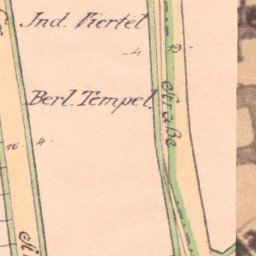 Ind. Viertel
4 19
Berl. Tempel.
Straße
16 4